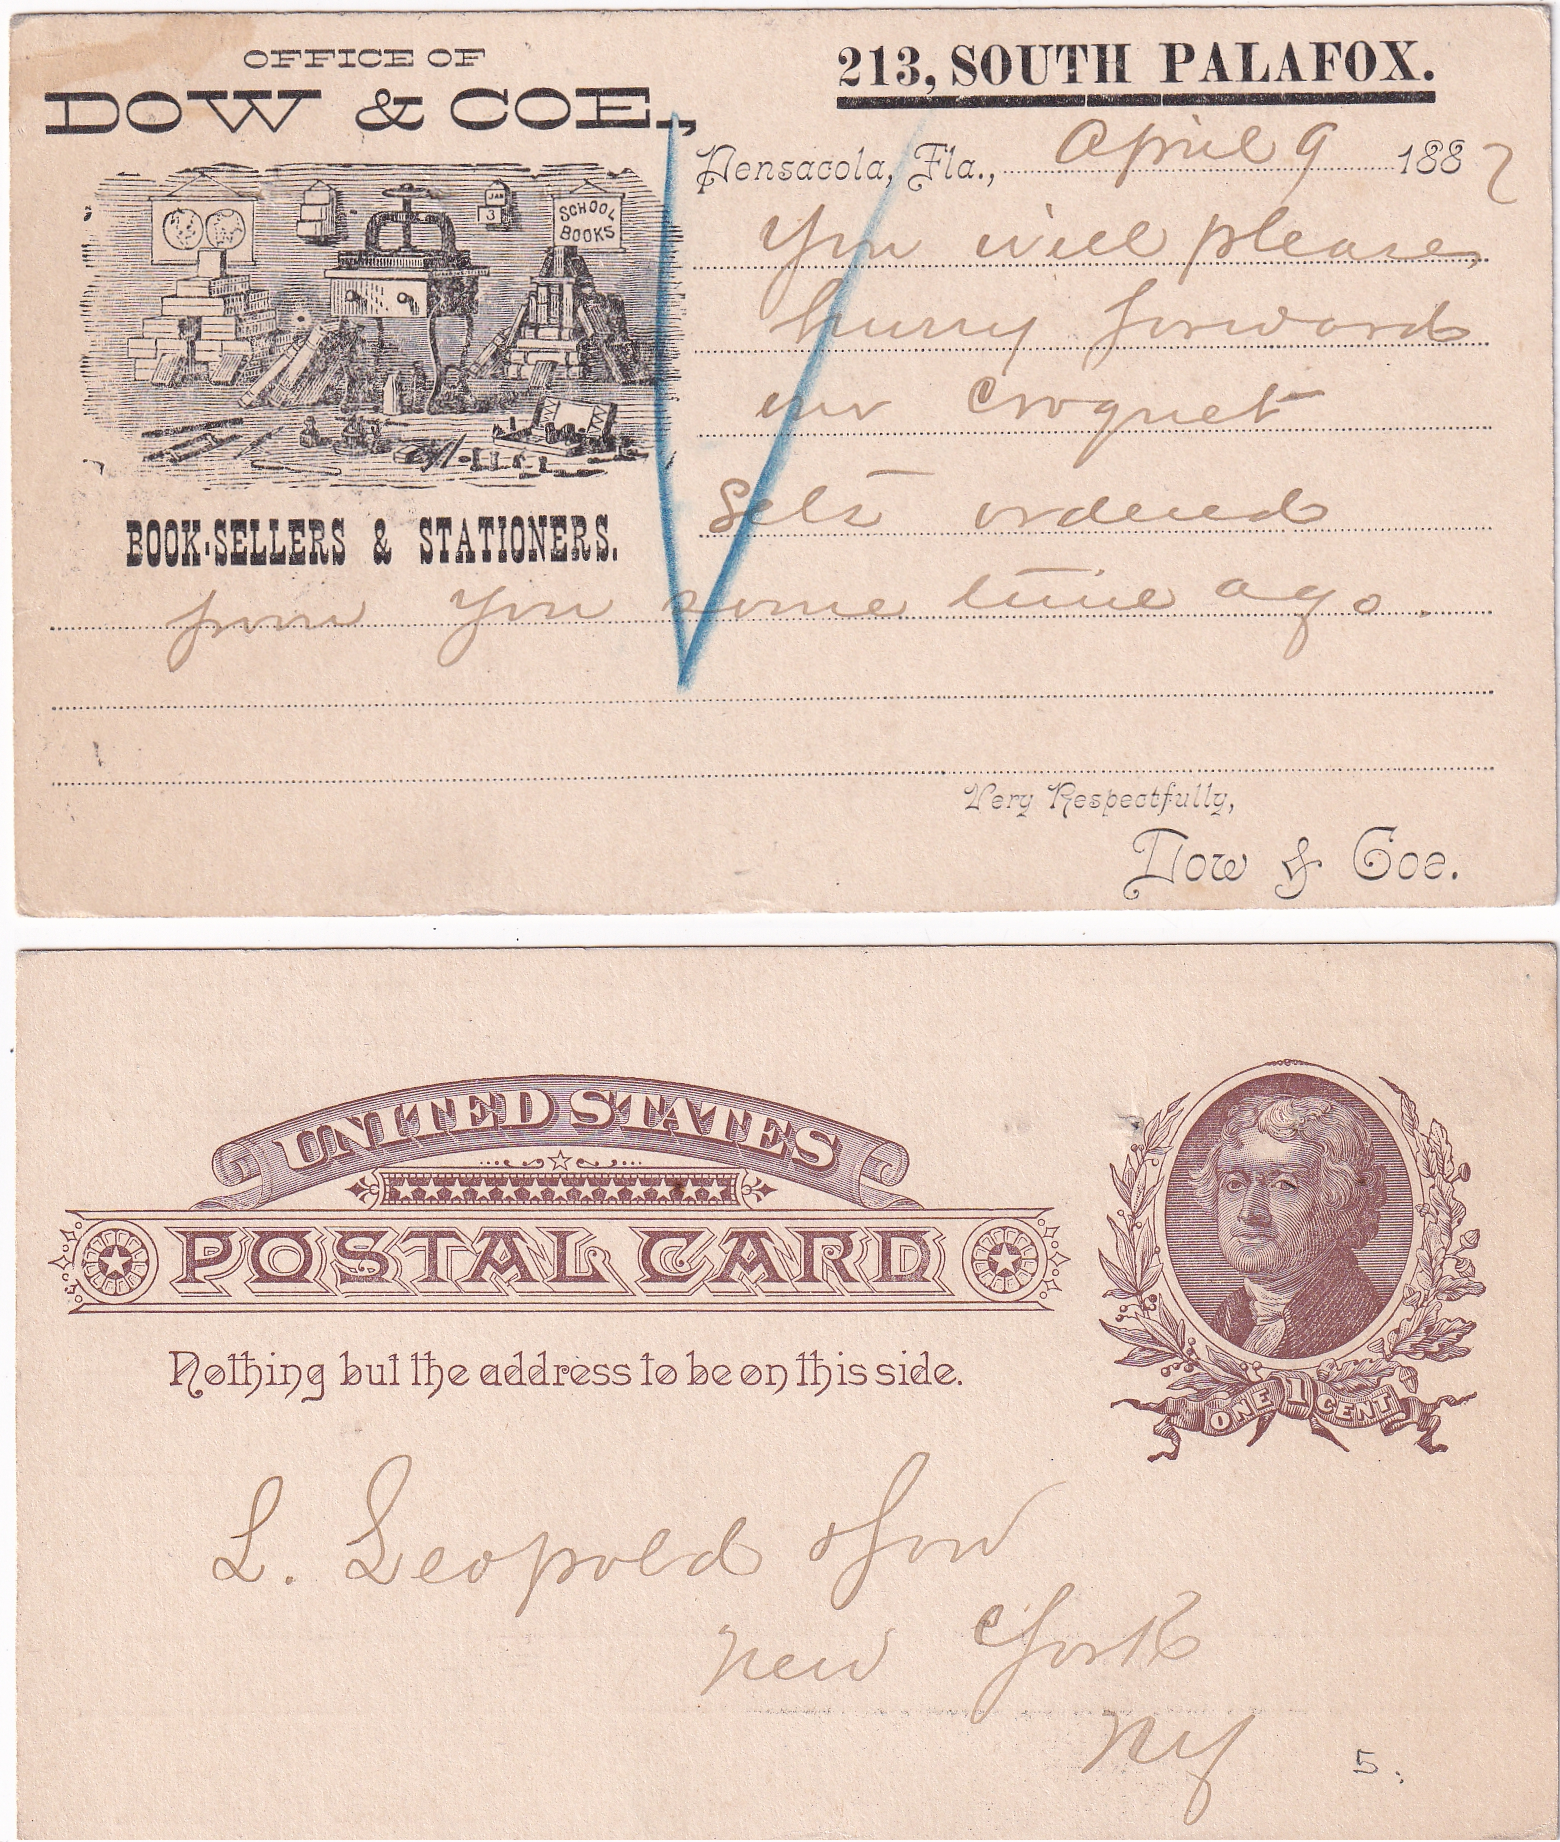 OFFICE OF
DOW & COE,
213, SOUTH PALAFOX.
Pensacola, Fla., April 9 1887
JAN
3
SCHOOL
BOOKS
BOOK-SELLERS & STATIONERS.
You will please
hurry forward
our Croquet
Sets ordered
from you some time ago.
Very Respectfully,
Dow & Coe.
UNITED STATES
POSTAL CARD
Nothing but the address to be on this side.
ONE 1 CENT
L. Leopold
New York
NY
5.